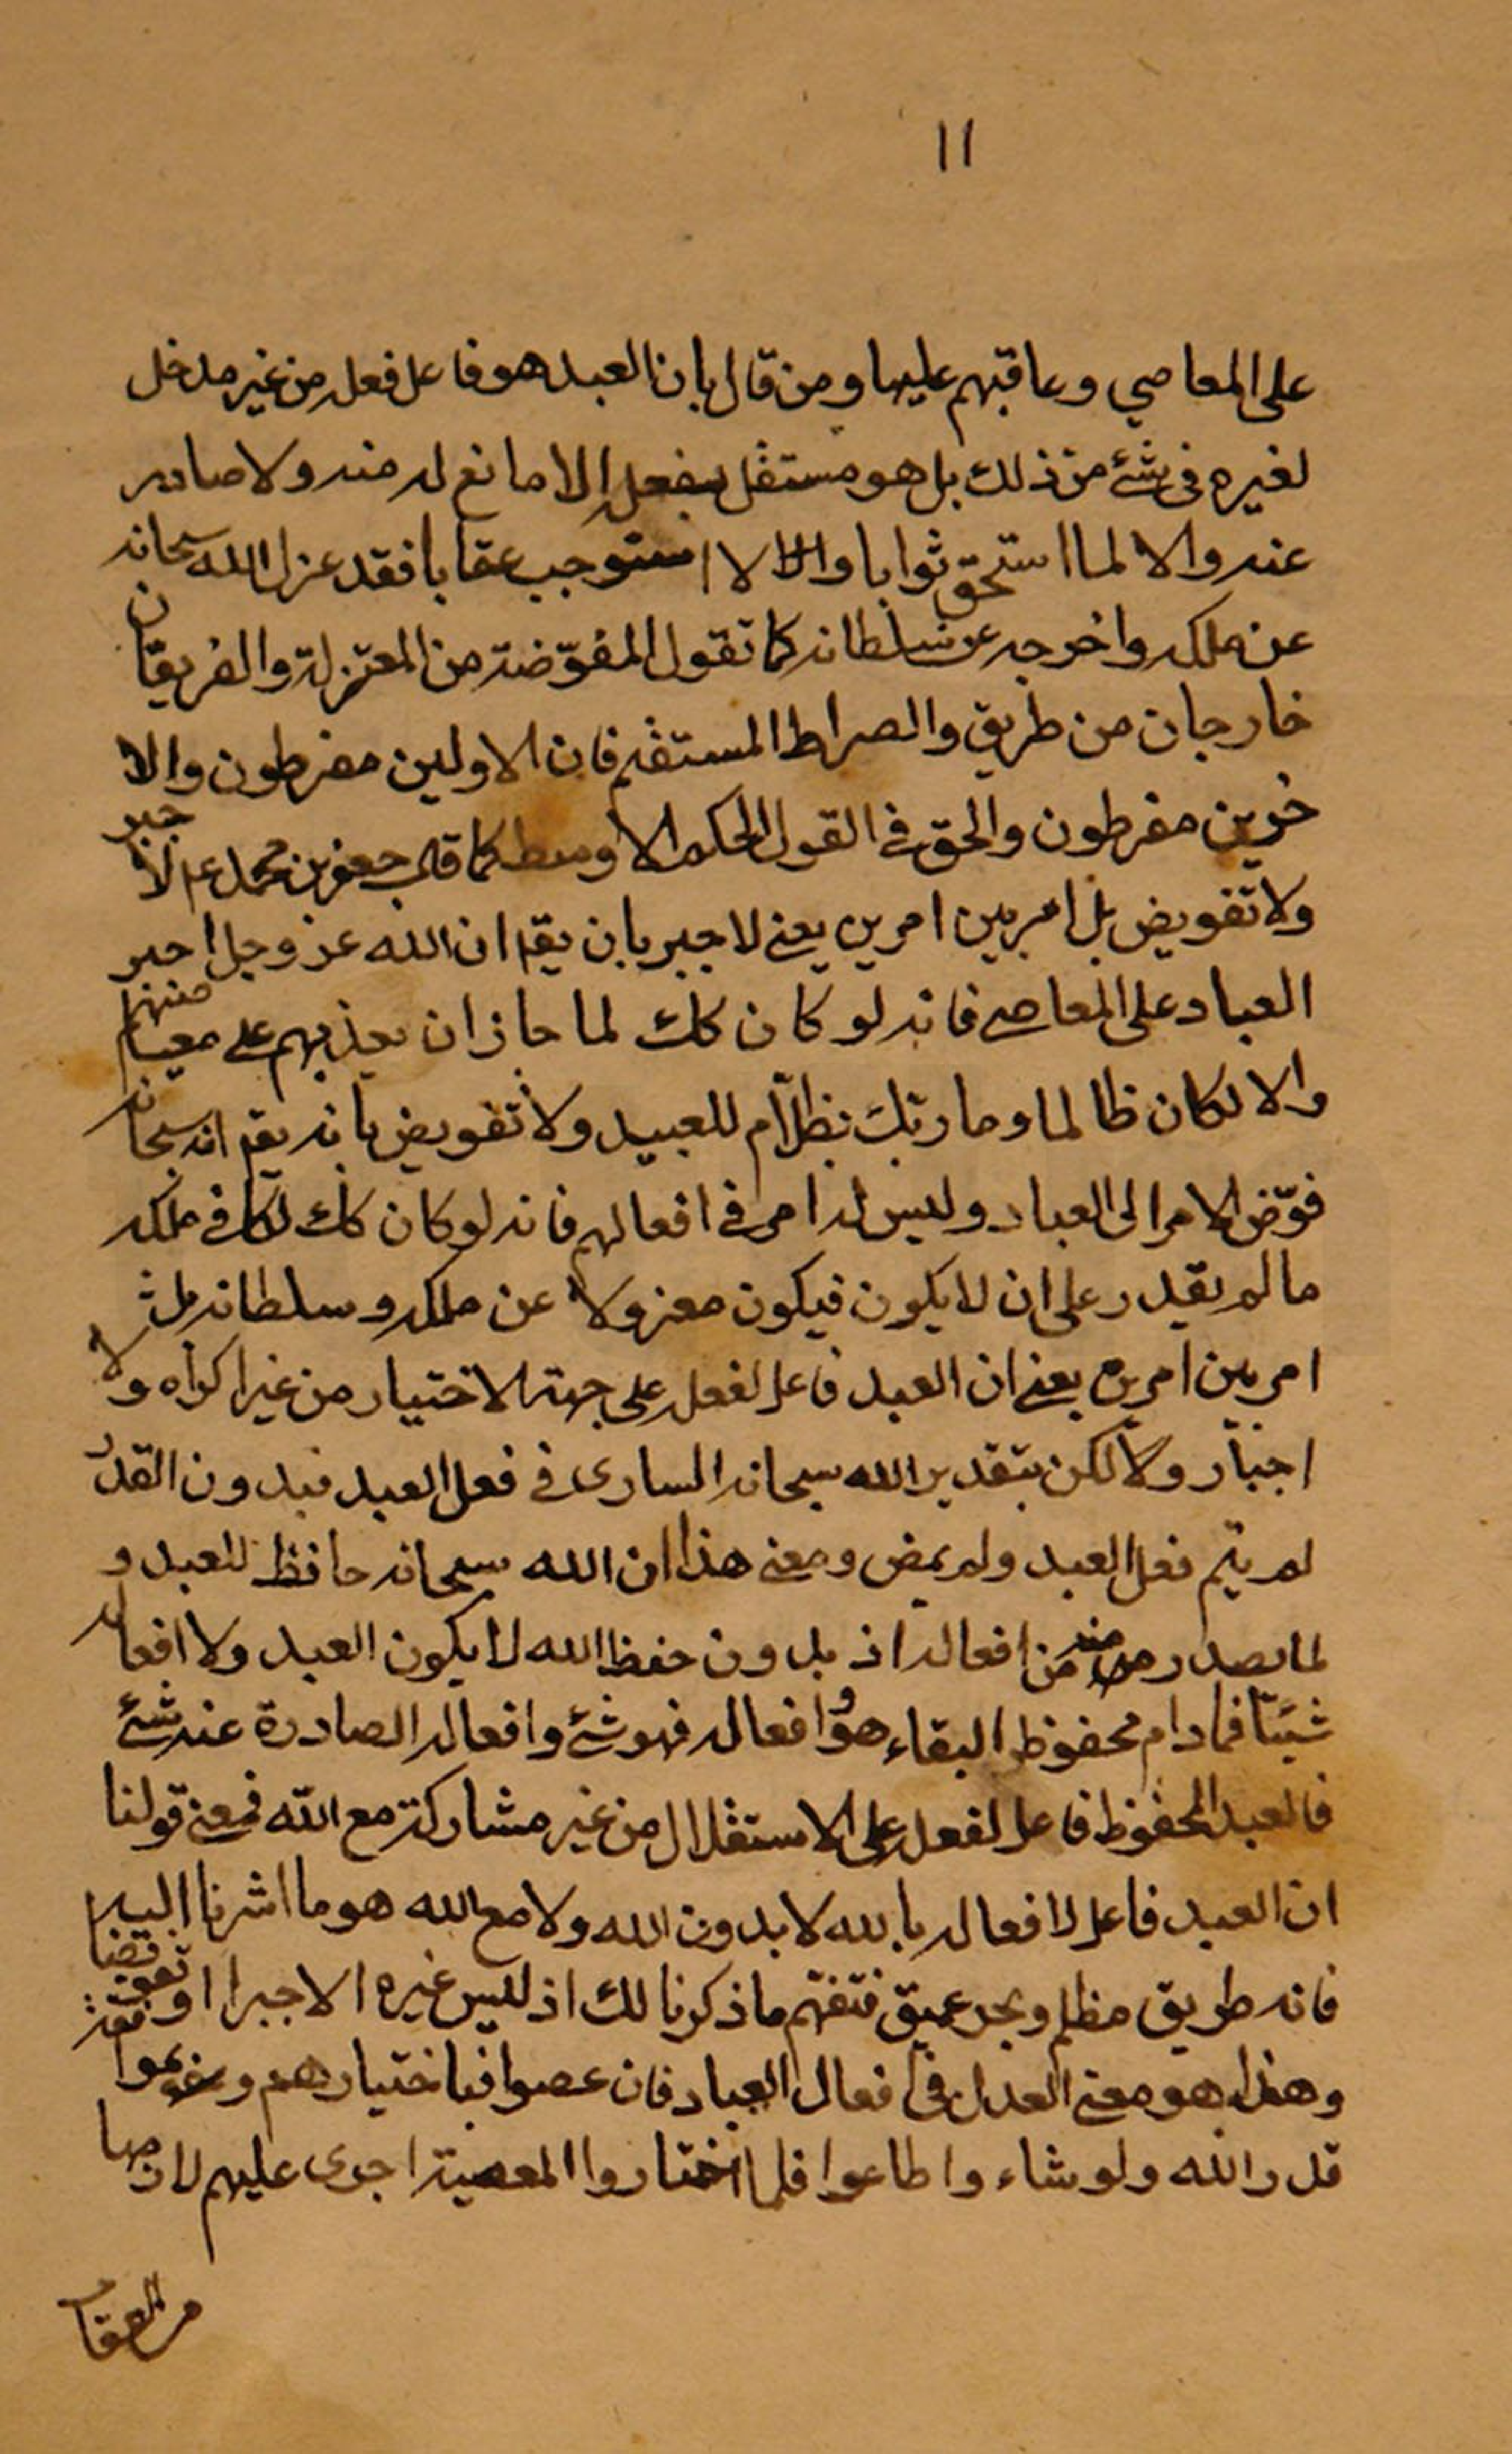 ١١
على المعاصي وعاقبهم عليها ومن قال بان العبد هو فاعل فعله من غير مدخل
لغيره فى شئ من ذلك بل هو مستقل بفعله الا مانع له منه ولا صاد له
عنه والا لما استحق ثوابا والا لا استوجب عقابا فقد عزل الله سبحانه
عن ملكه واخرجه عن سلطانه كما تقول المفوّضة من المعتزلة والفريقان
خارجان من طريق والصراط المستقيم فان الاولين مفرطون والا
خرين مفرطون والحق في القول الحكم الاوسط كما قال جعفر بن محمد ع م لا جبر
ولا تفويض بل امر بين امرين يعنى لا جبر بان يقم ان الله عز وجل اجبر
العباد على المعاصى فانه لو كان كك لما جاز ان يعذبهم على معيا منهم
والا لكان ظالما وما ربّك بظلّام للعبيد ولا تفويض بانه يقم انه سبحانه
فوّض الامر الى العباد وليس له امر في افعالهم فانه لو كان كك لكا في ملكه
ما لم يقدر على ان لا يكون فيكون معزولا عن ملكه وسلطانه بل
امر بين امرين يعنى ان العبد فاعل لفعله على جهة الاختيار من غير اكراه ولا
اجبار ولا لكن بتقدير الله سبحانه السارى في فعل العبد فبدون القدر
لم يتم فعل العبد ولم يمض ومعنى هذا ان الله سبحانه حافظ للعبد و
لما يصدر منه من افعاله اذ بدون حفظ الله لا يكون العبد ولا افعاله
شيئا فما دام محفوظ البقاء هو وافعاله فهو شئ وافعاله الصادرة عنه شئ
فالعبد المحفوظ فاعل لفعله على الاستقلال من غير مشاركة مع الله فمعنى قولنا
ان العبد فاعل لافعاله بالله لا بدون الله ولا مع الله هو ما اشرنا اليه
فانه طريق مظلم وبحر عميق فتفهّم ما ذكرنا لك اذ ليس غيره الا جبرا او تفويضا
وهذا هو معنى العدل في افعال العباد فان عصوا فباختيارهم و
قدر الله ولو شاء واطاعوا فلما اختاروا المعصية اجرى عليهم لازمها
من العقا